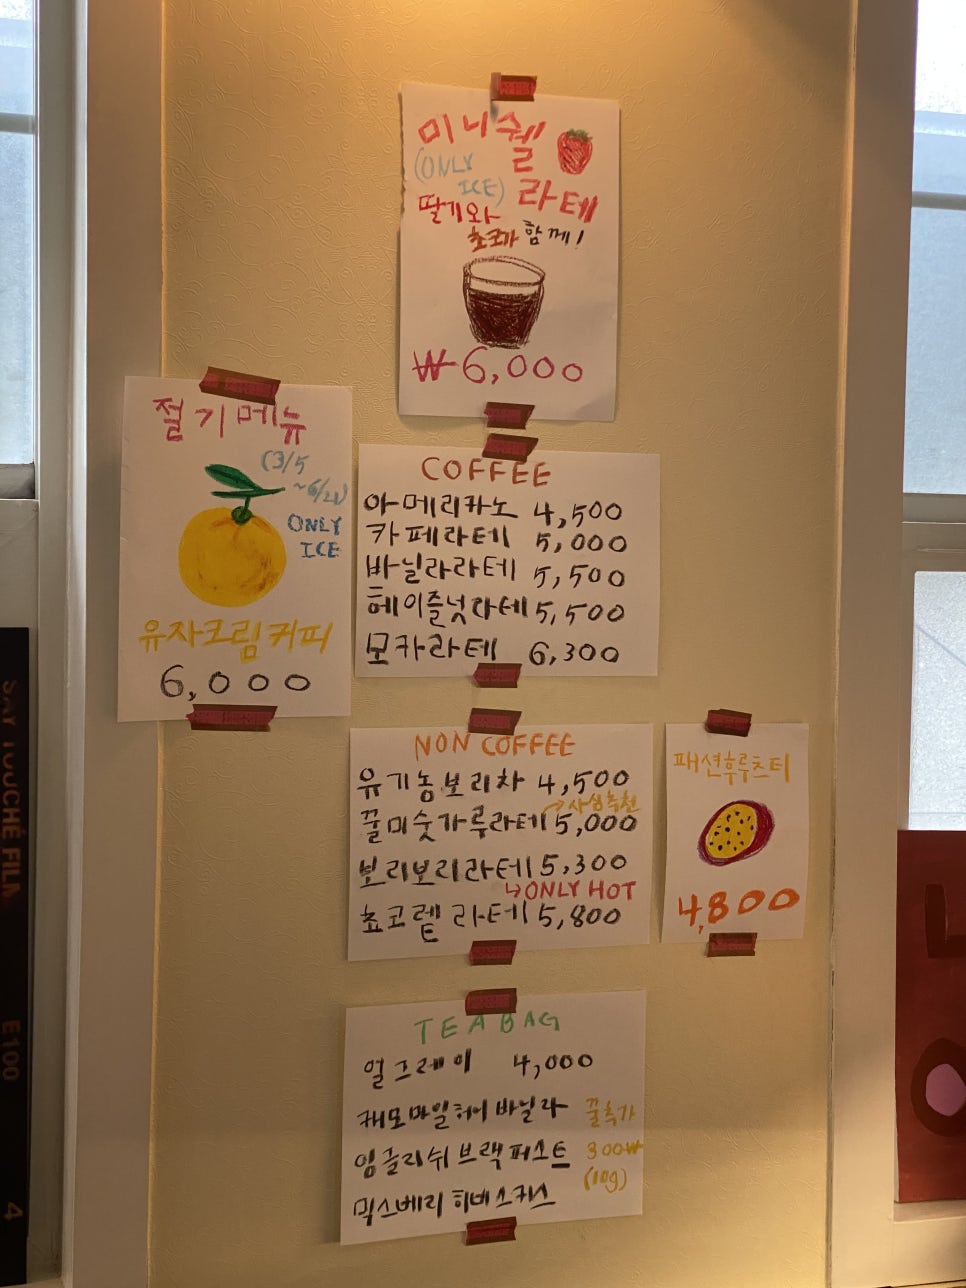 미니쉘
(ONLY
ICE)
라떼
딸기와
초코가 함께!
₩6,000
절기메뉴
(3/5
~6/21)
ONLY
ICE
유자크림커피
6,000
COFFEE
아메리카노 4,500
카페라테 5,000
바닐라라테 5,500
헤이즐넛라테 5,500
모카라테 6,300
NON COFFEE
유기농보리차 4,500
→사심추천
꿀미숫가루라테 5,000
보리보리라테 5,300
↳ONLY HOT
쵸코렡 라테 5,800
패션후루츠티
4,800
TEA BAG
얼그레이 4,000
캐모마일허니바닐라
잉글리쉬브랙퍼스트
믹스베리히비스커스
꿀추가
300₩
(10g)
SAY TOUCHÉ FILM
E100
4